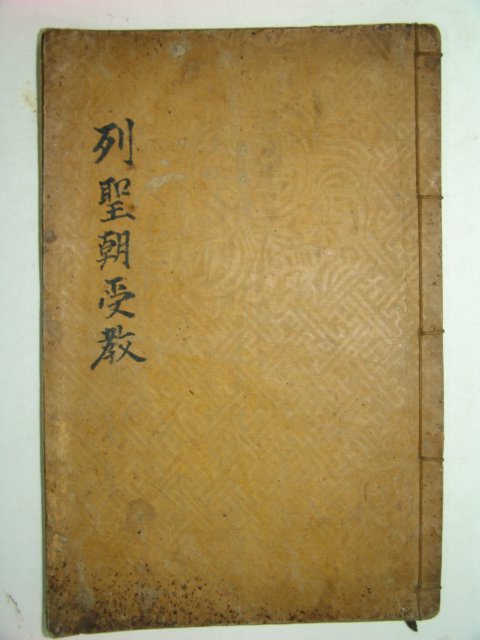 列聖朝受教